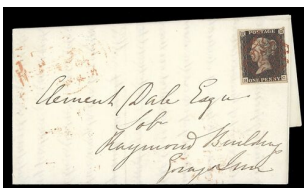 POSTAGE
ONE PENNY
Clement Dale Esqr
Raymond Building